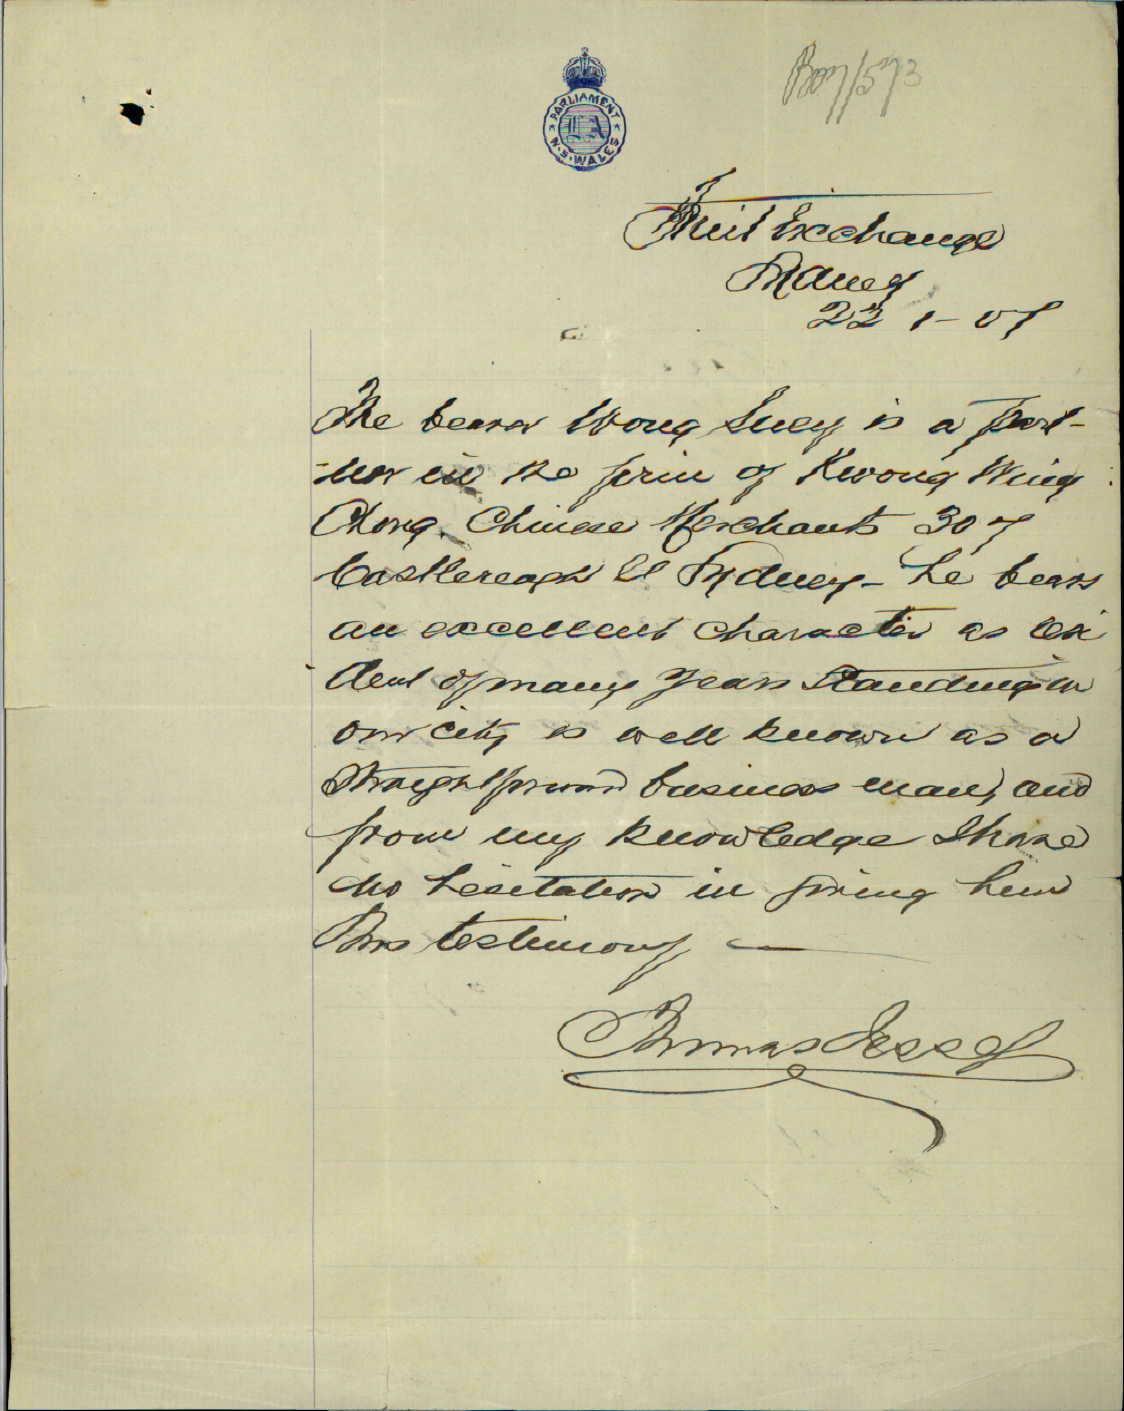 PARLIAMENT
LA
N.S. WALES
Fruit Exchange
Sydney
22 1-07
The bearer Wong Suey is a part-
-ner in the firm of Kwong Wing
Chong, Chinese Merchants 307
Castlereagh St Sydney - he bears
an excellent character as resi
dent of many years standing in
our city is well known as a
straightforward business man, and
from my knowledge I have
no hesitation in giving him
this testimony —
Thomas Jessep